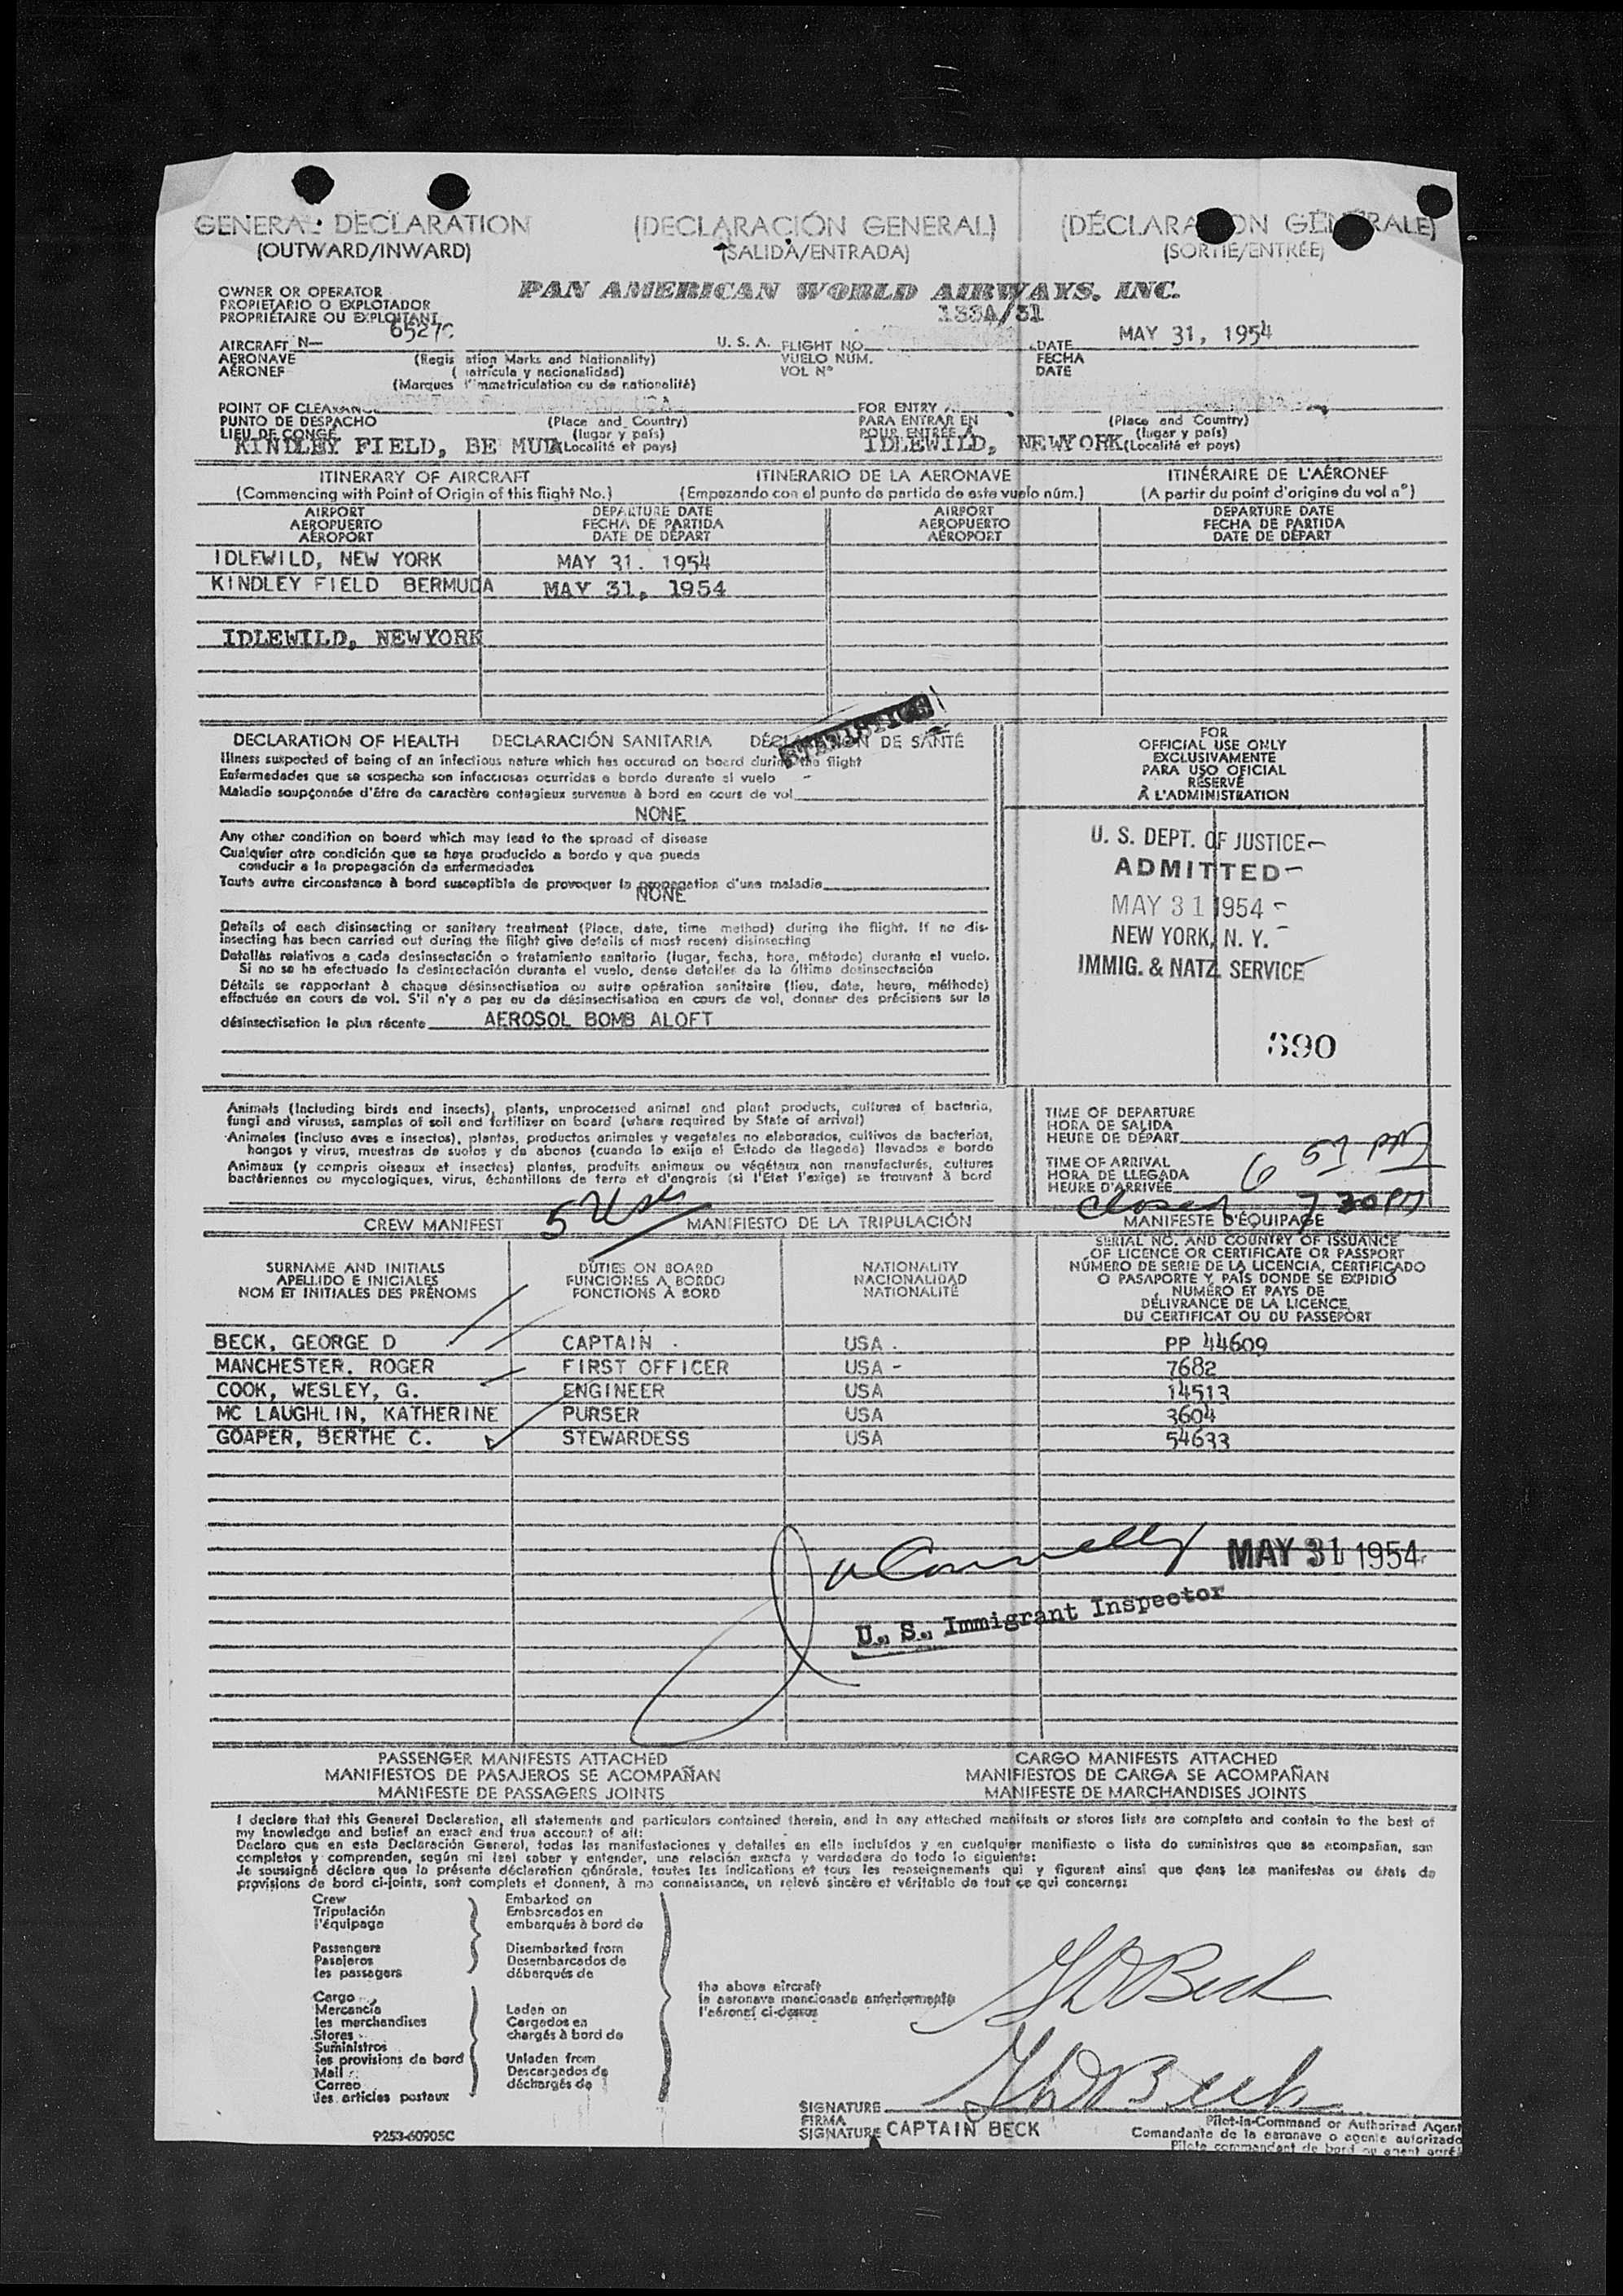 GENERAL DECLARATION (DECLARACIÓN GENERAL) (DÉCLARATION GÉNÉRALE)
(OUTWARD/INWARD) (SALIDA/ENTRADA) (SORTIE/ENTRÉE)
OWNER OR OPERATOR
PROPIETARIO O EXPLOTADOR
PROPRIÉTAIRE OU EXPLOITANT
PAN AMERICAN WORLD AIRWAYS, INC.
AIRCRAFT N— U. S. A. FLIGHT NO. DATE MAY 31, 1954
AERONAVE (Regis ation Marks and Nationality) VUELO NÚM. FECHA
AÉRONEF ( atrícula y nacionalidad) VOL N° DATE
(Marques d'immatriculation ou de nationalité)
POINT OF CLEARANCE FOR ENTRY
PUNTO DE DESPACHO (Place and Country) PARA ENTRAR EN (Place and Country)
LIEU DE CONGÉ (lugar y país) POUR ENTRÉE À (lugar y país)
KINDLEY FIELD, BE MUDA (Localité et pays) IDLEWILD, NEWYORK (Localité et pays)
ITINERARY OF AIRCRAFT ITINERARIO DE LA AERONAVE ITINÉRAIRE DE L'AÉRONEF
(Commencing with Point of Origin of this flight No.) (Empezando con el punto de partida de este vuelo núm.) (A partir du point d'origine du vol n°)
AIRPORT DEPARTURE DATE AIRPORT DEPARTURE DATE
AEROPUERTO FECHA DE PARTIDA AEROPUERTO FECHA DE PARTIDA
AÉROPORT DATE DE DÉPART AÉROPORT DATE DE DÉPART
IDLEWILD, NEW YORK MAY 31. 1954
KINDLEY FIELD BERMUDA MAY 31, 1954
IDLEWILD, NEWYORK
DECLARATION OF HEALTH DECLARACIÓN SANITARIA DÉCLARATION DE SANTÉ
Illness suspected of being of an infectious nature which has occured on board during the flight
Enfermedades que se sospecha son infecciosas ocurridas a bordo durante el vuelo
Maladie soupçonnée d'être de caractère contagieux survenue à bord en cours de vol
NONE
Any other condition on board which may lead to the spread of disease
Cualquier otra condición que se haya producido a bordo y que pueda
conducir a la propagación de enfermedades
Toute autre circonstance à bord susceptible de provoquer la propagation d'une maladie
NONE
Details of each disinsecting or sanitary treatment (Place, date, time method) during the flight. If no dis-
insecting has been carried out during the flight give details of most recent disinsecting
Detalles relativos a cada desinsectación o tratamiento sanitario (lugar, fecha, hora, método) durante el vuelo.
Si no se ha efectuado la desinsectación durante el vuelo, dense detalles de la última desinsectación
Détails se rapportant à chaque désinsectisation ou autre opération sanitaire (lieu, date, heure, méthode)
effectuée en cours de vol. S'il n'y a pas eu de désinsectisation en cours de vol, donner des précisions sur la
désinsectisation la plus récente AEROSOL BOMB ALOFT
FOR
OFFICIAL USE ONLY
EXCLUSIVAMENTE
PARA USO OFICIAL
RÉSERVÉ
À L'ADMINISTRATION
U. S. DEPT. OF JUSTICE
ADMITTED
MAY 31 1954
NEW YORK, N. Y.
IMMIG. & NATZ. SERVICE
Animals (including birds and insects), plants, unprocessed animal and plant products, cultures of bacteria,
fungi and viruses, samples of soil and fertilizer on board (where required by State of arrival)
Animales (incluso aves e insectos), plantas, productos animales y vegetales no elaborados, cultivos de bacterias,
hongos y virus, muestras de suelos y de abonos (cuando lo exija el Estado de llegada) llevados a bordo
Animaux (y compris oiseaux et insectes) plantes, produits animaux ou végétaux non manufacturés, cultures
bactériennes ou mycologiques, virus, échantillons de terre et d'engrais (si l'Etat l'exige) se trouvant à bord
TIME OF DEPARTURE
HORA DE SALIDA
HEURE DE DÉPART
TIME OF ARRIVAL
HORA DE LLEGADA
HEURE D'ARRIVÉE 6 57 PM
Closed 7 30 PM
CREW MANIFEST MANIFIESTO DE LA TRIPULACIÓN MANIFESTE D'ÉQUIPAGE
SURNAME AND INITIALS
APELLIDO E INICIALES
NOM ET INITIALES DES PRÉNOMS
DUTIES ON BOARD
FUNCIONES A BORDO
FONCTIONS À BORD
NATIONALITY
NACIONALIDAD
NATIONALITÉ
SERIAL NO. AND COUNTRY OF ISSUANCE
OF LICENCE OR CERTIFICATE OR PASSPORT
NÚMERO DE SERIE DE LA LICENCIA, CERTIFICADO
O PASAPORTE Y PAÍS DONDE SE EXPIDIÓ
NUMÉRO ET PAYS DE
DÉLIVRANCE DE LA LICENCE,
DU CERTIFICAT OU DU PASSEPORT
BECK, GEORGE D CAPTAIN USA PP 44609
MANCHESTER, ROGER FIRST OFFICER USA 7682
COOK, WESLEY, G. ENGINEER USA 14513
MC LAUGHLIN, KATHERINE PURSER USA 3604
GOAPER, BERTHE C. STEWARDESS USA 54633
MAY 31 1954
U. S. Immigrant Inspector
PASSENGER MANIFESTS ATTACHED CARGO MANIFESTS ATTACHED
MANIFIESTOS DE PASAJEROS SE ACOMPAÑAN MANIFIESTOS DE CARGA SE ACOMPAÑAN
MANIFESTE DE PASSAGERS JOINTS MANIFESTE DE MARCHANDISES JOINTS
I declare that this General Declaration, all statements and particulars contained therein, and in any attached manifests or stores lists are complete and contain to the best of
my knowledge and belief an exact and true account of all:
Declaro que en esta Declaración General, todas las manifestaciones y detalles en ella incluídos y en cualquier manifiesto o lista de suministros que se acompañan, son
completos y comprenden, según mi leal saber y entender, una relación exacta y verdadera de todo lo siguiente:
Je soussigné déclare que la présente déclaration générale, toutes les indications et tous les renseignements qui y figurent ainsi que dans les manifestes ou états de
provisions de bord ci-joints, sont complets et donnent, à ma connaissance, un relevé sincère et véritable de tout ce qui concerne:
Crew Embarked on
Tripulación Embarcados en
l'équipage embarqués à bord de
Passengers Disembarked from
Pasajeros Desembarcados de
les passagers débarqués de
the above aircraft
la aeronave mencionada anteriormente
l'aéronef ci-dessus
Cargo
Mercancía Laden on
les marchandises Cargados en
Stores chargés à bord de
Suministros
les provisions de bord Unladen from
Mail Descargados de
Correo déchargés de
les articles postaux
G D Beck
G D Beck
SIGNATURE
FIRMA
SIGNATURE CAPTAIN BECK
Pilot-in-Command or Authorized Agent
Comandante de la aeronave o agente autorizado
Pilote commandant de bord ou agent agréé
9253-60905C